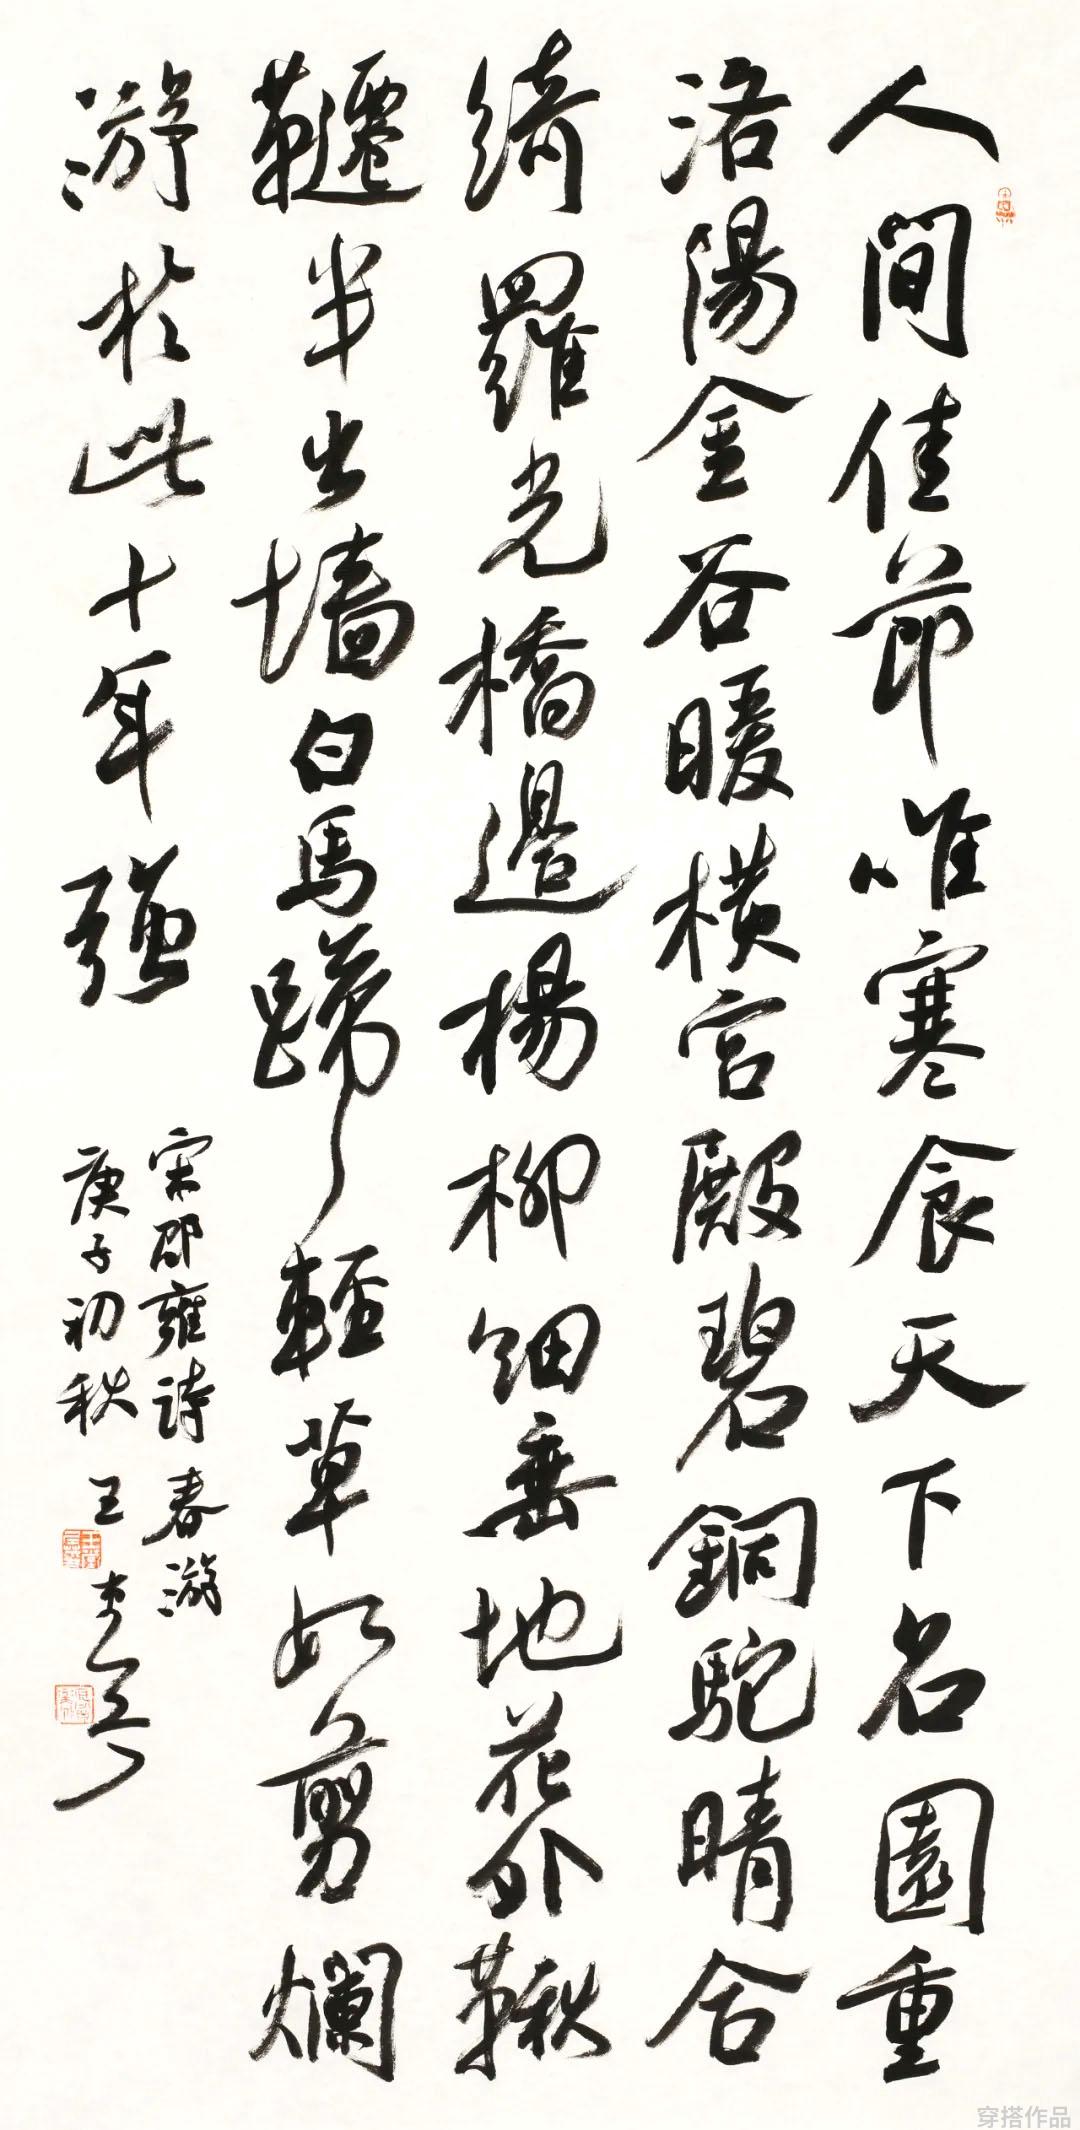 人間佳節唯寒食天下名園重
洛陽金谷暖橫宮殿碧銅駝晴合
綺羅光橋邊楊柳細垂地花外鞦
韆半出墻白馬蹄輕草如剪爛
游於此十年強
宋邵雍詩春游
庚子初秋王
穿搭作品